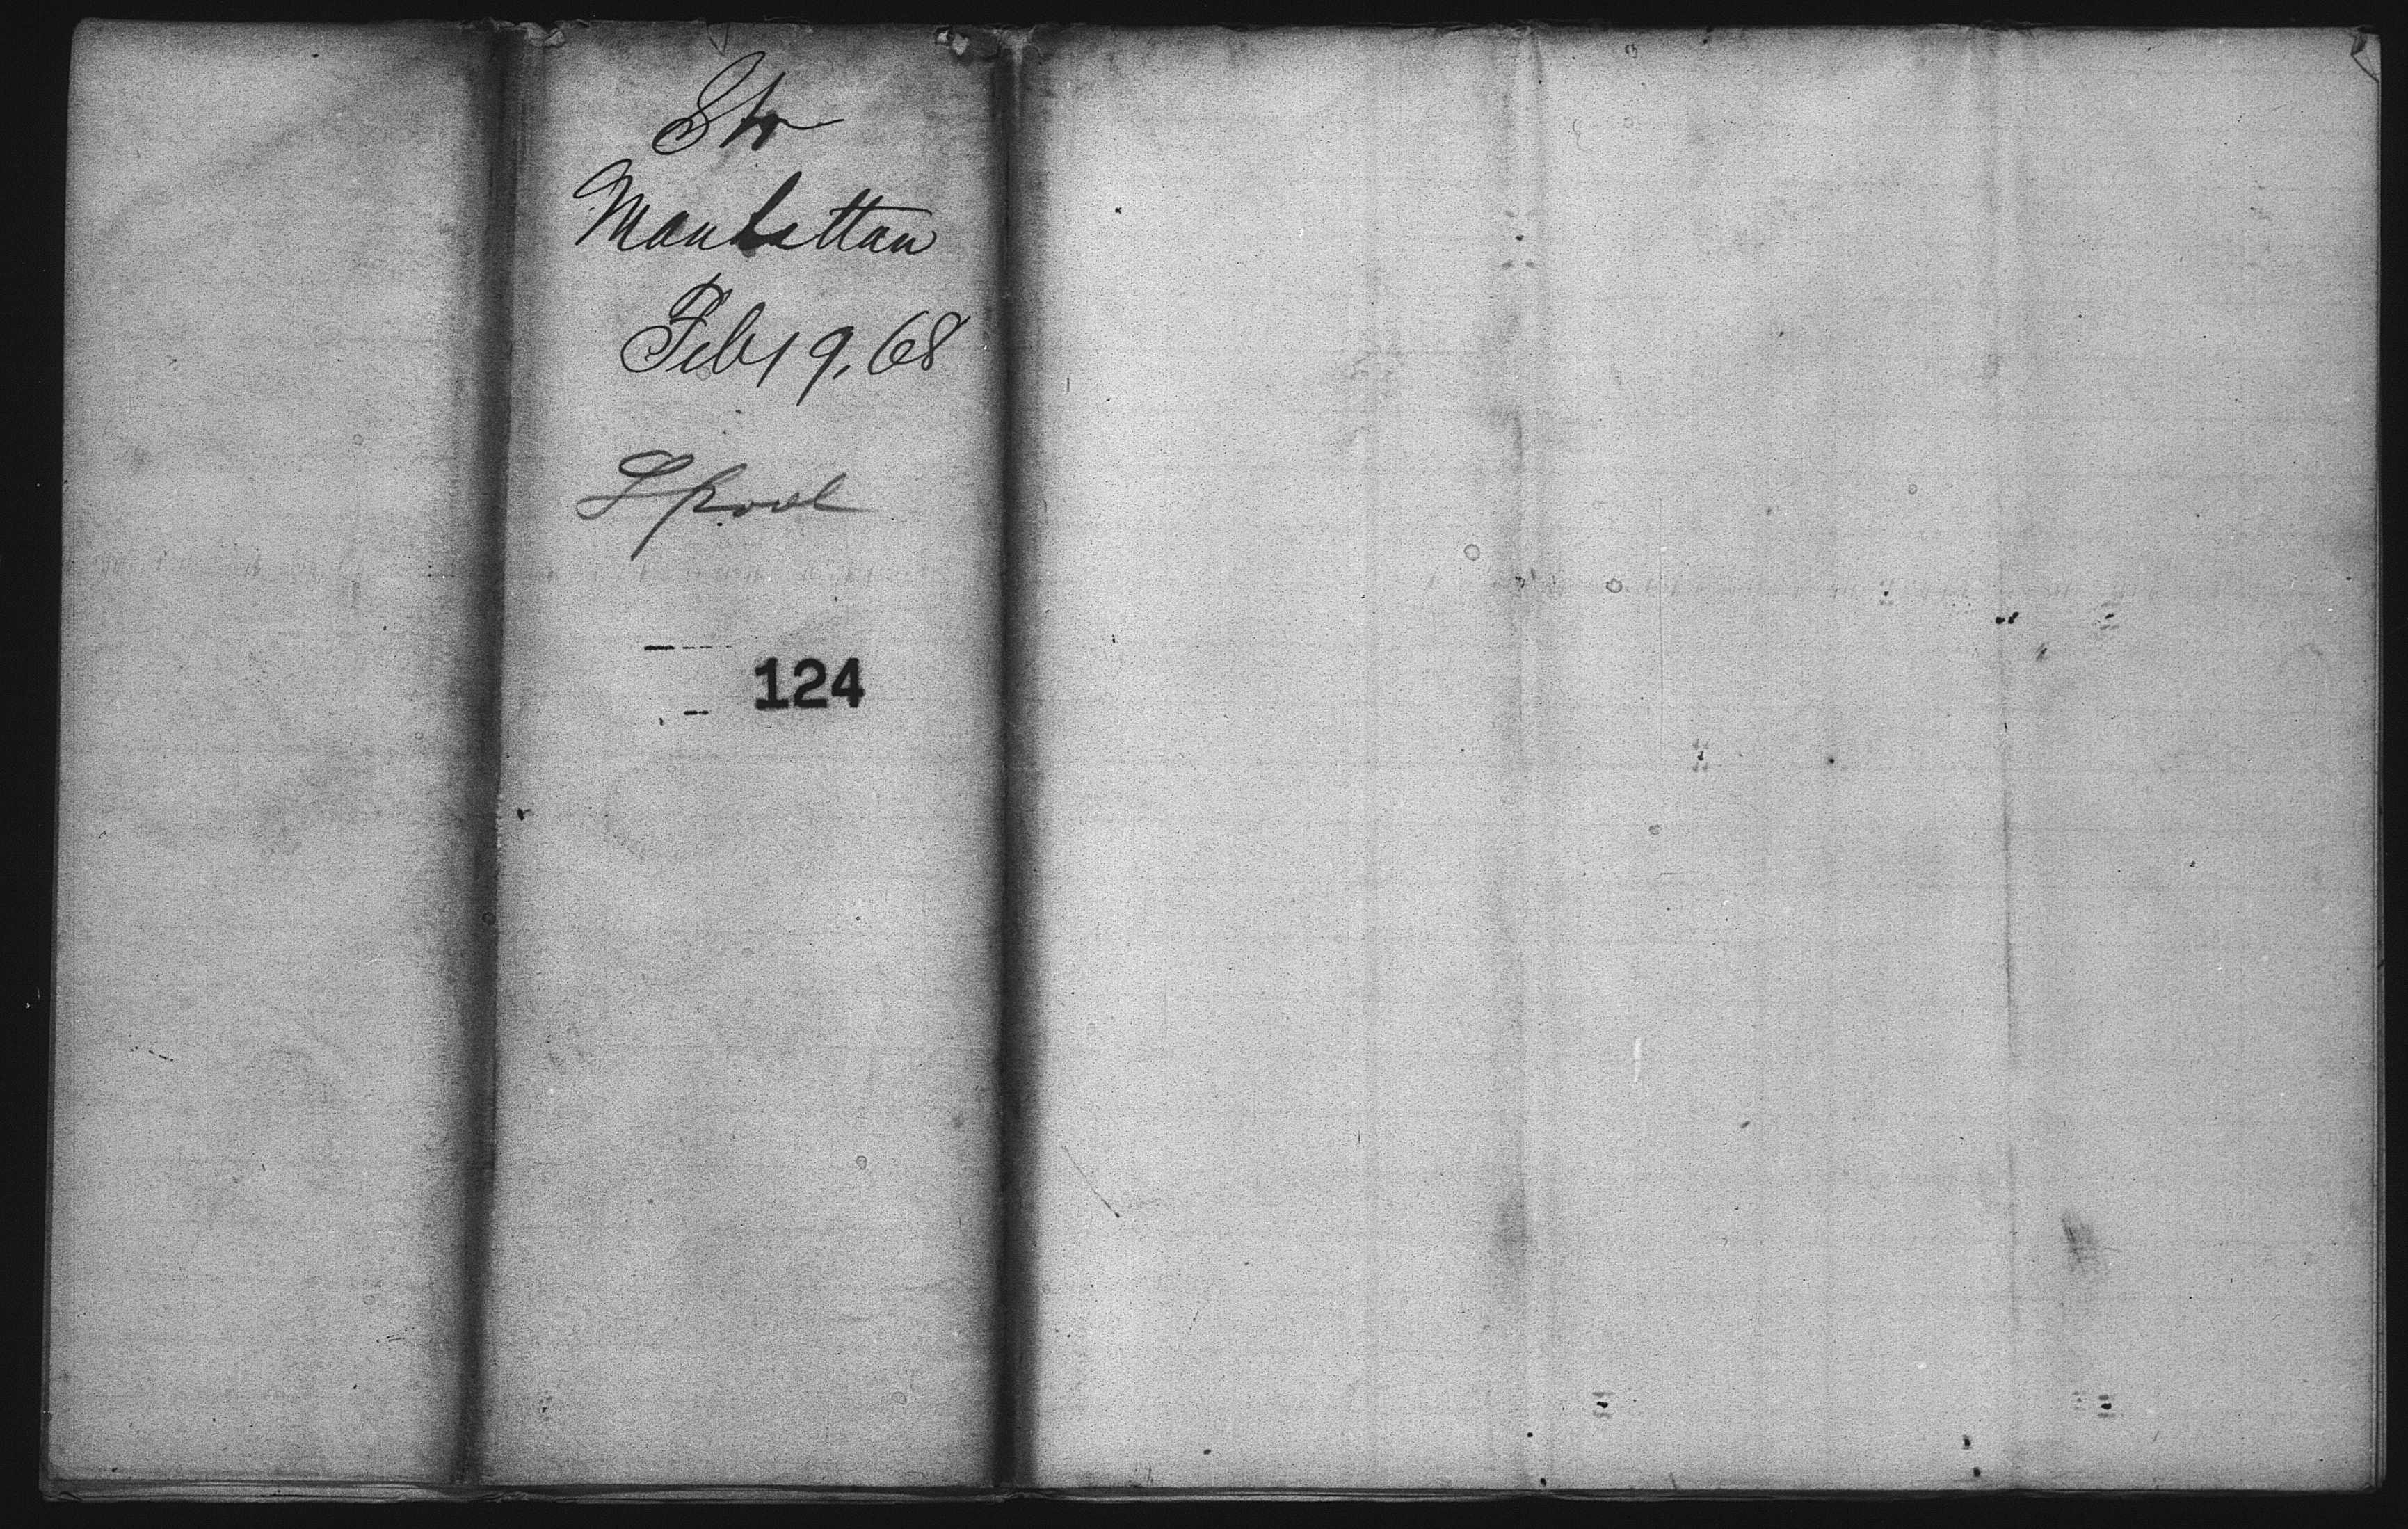 Str
Manhattan
Feb 19, 68
Lpool
124